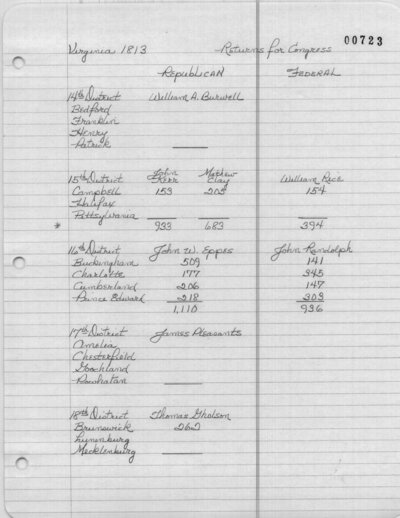 00723
Virginia 1813 Returns for Congress
Republican Federal
14th District William A. Burwell
Bedford
Franklin
Henry
Patrick
15th District John Kerr Matthew Clay William Rice
Campbell 153 205 154
Halifax
Pittsylvania
* 933 683 394
16th District John W. Eppes John Randolph
Buckingham 509 141
Charlotte 177 345
Cumberland 206 147
Prince Edward 218 303
1,110 936
17th District James Pleasants
Amelia
Chesterfield
Goochland
Powhatan
18th District Thomas Gholson
Brunswick 262
Lunenburg
Mecklenburg